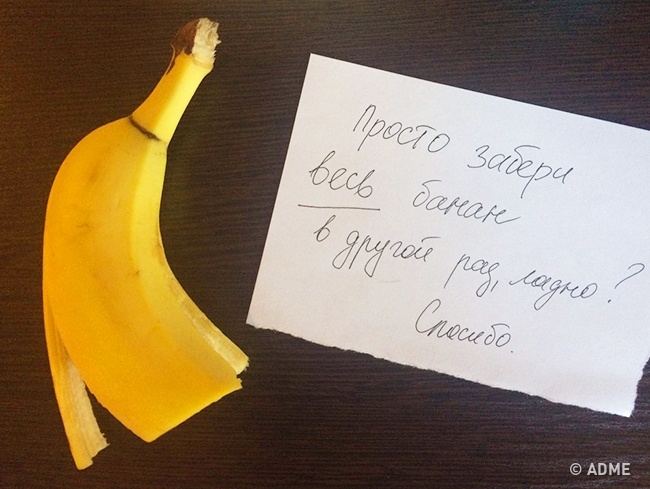 Просто забери
весь банан
в другой раз, ладно?
Спасибо.
© ADME